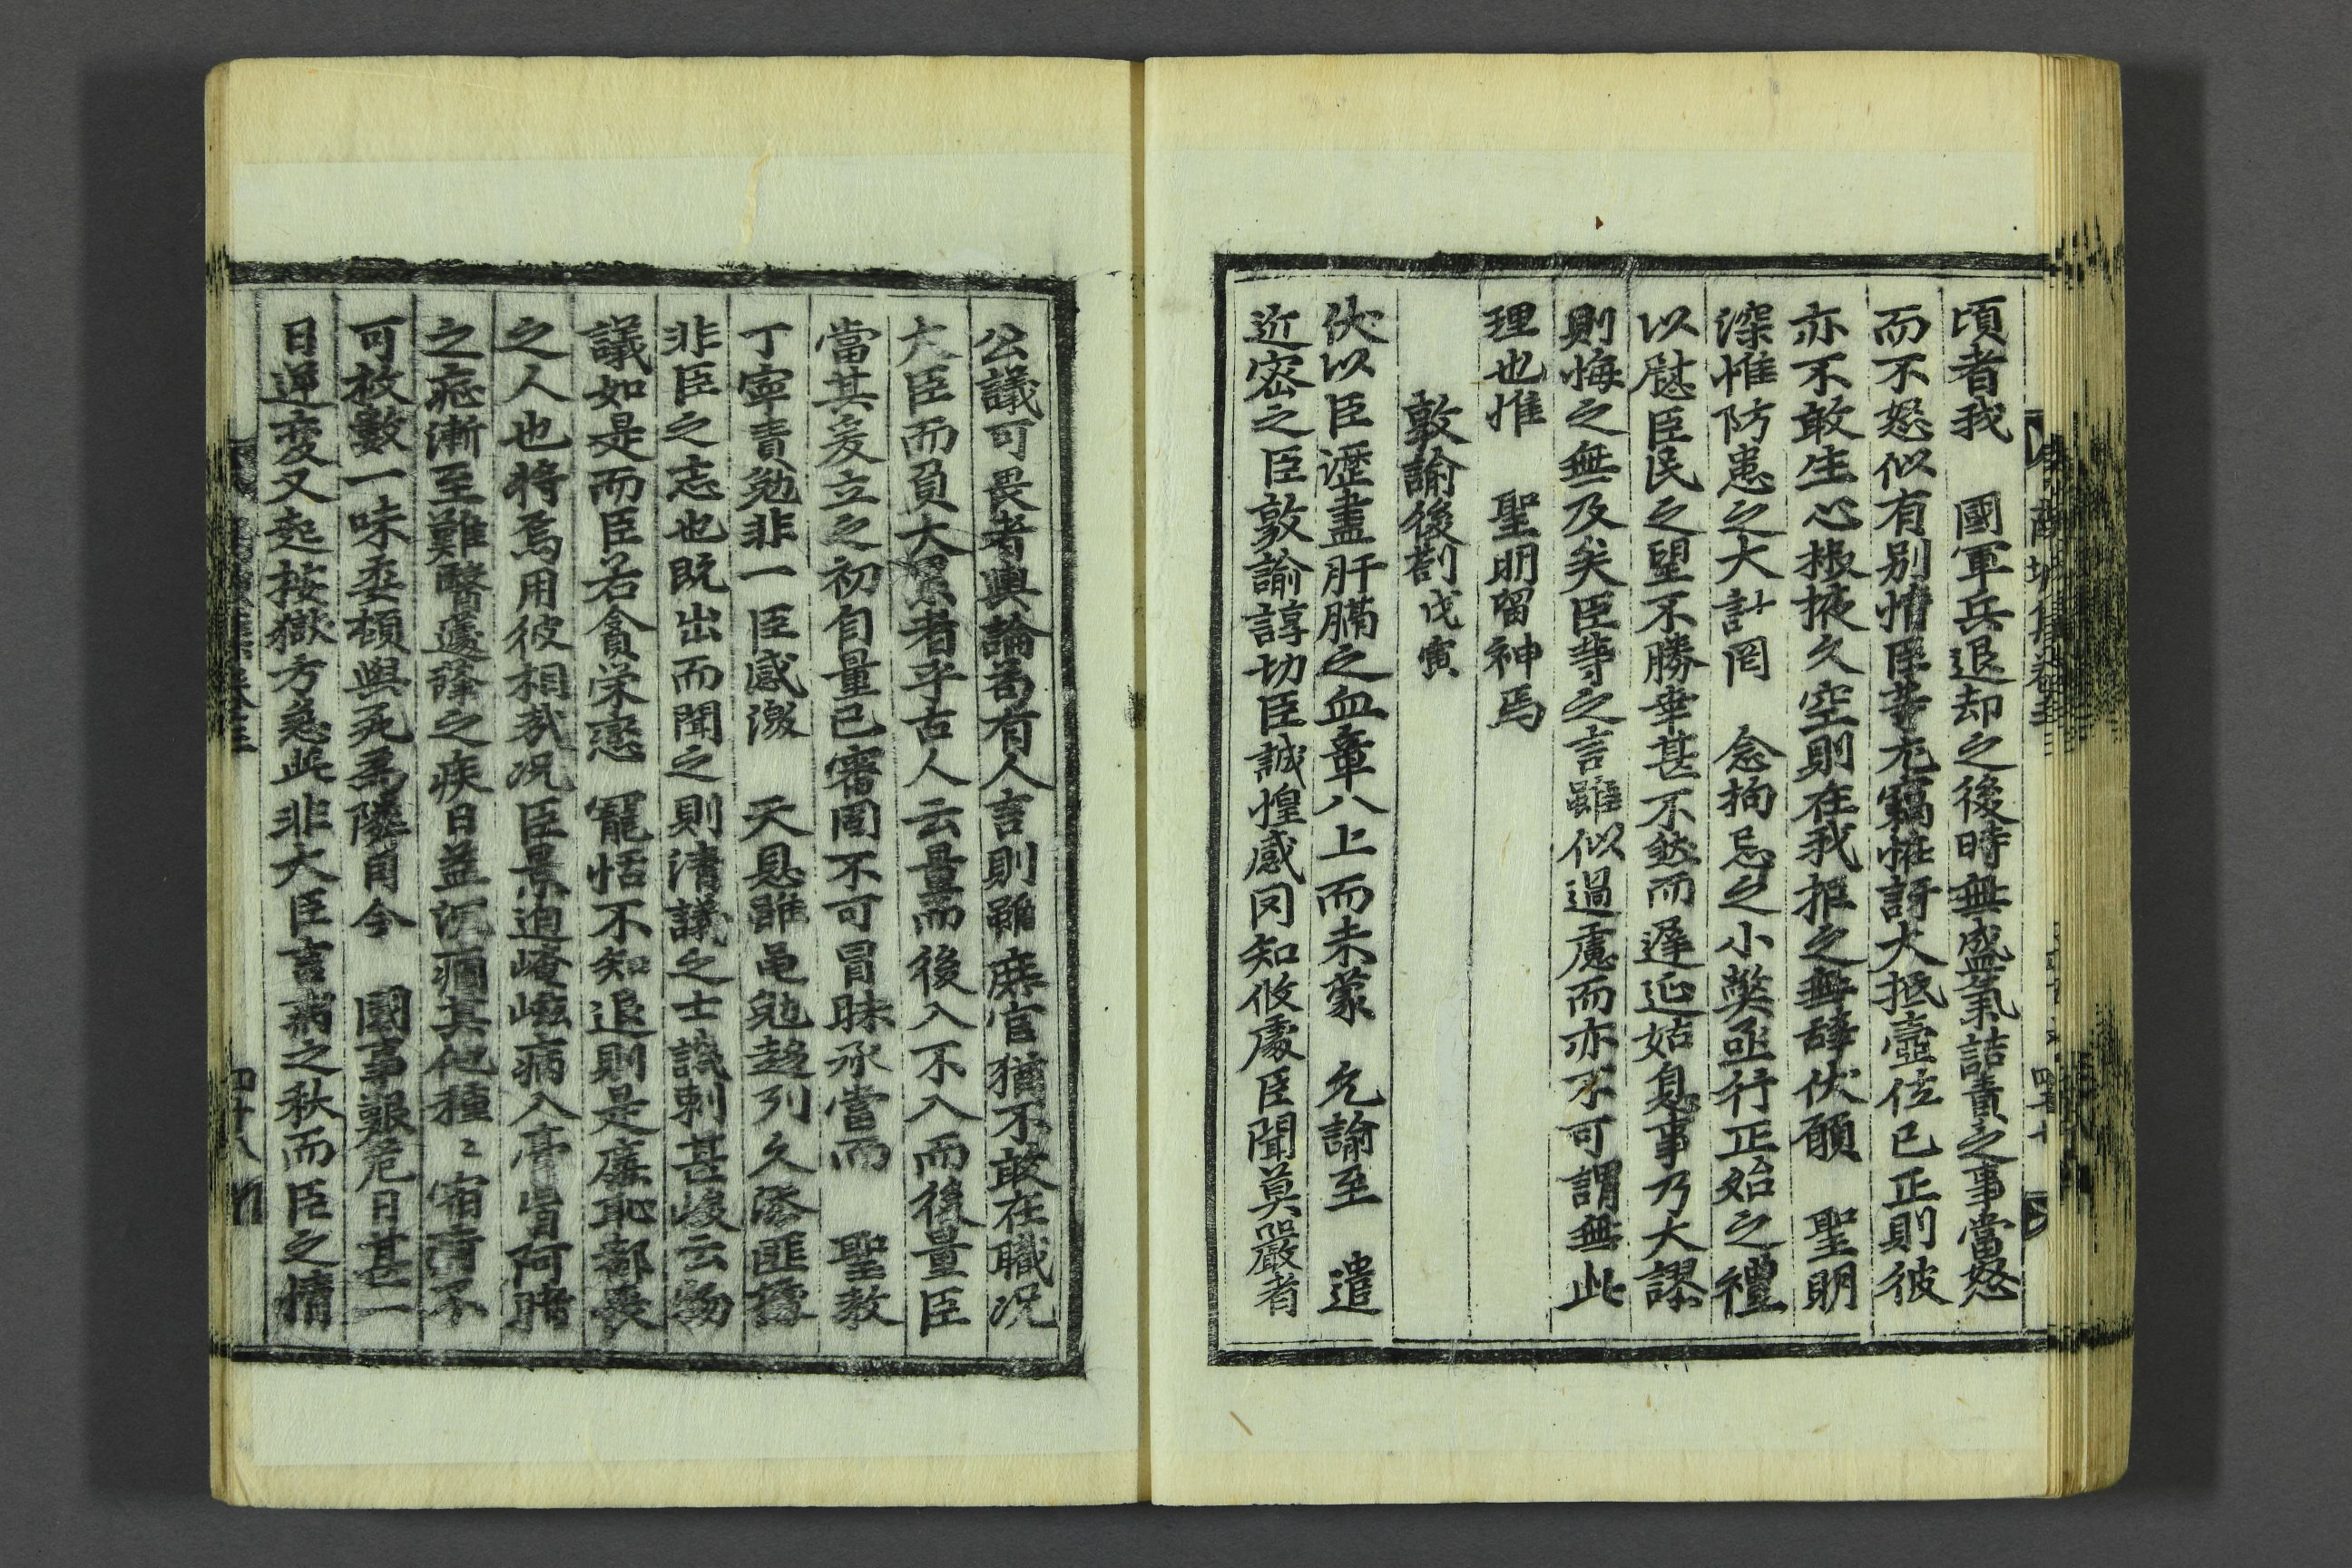 頃者我 國軍兵退却之後時無盛氣詰責之事當怒
而不怒似有別情臣等尤竊恠訝大抵壼位已正則彼
亦不敢生心掖掖久空則在我拒之無辭伏願 聖明
深惟防患之大計罔 念拘忌之小獘亟行正始之禮
以慰臣民之望不勝幸甚不然而遲延姑息事乃大謬
則悔之無及矣臣等之言雖似過慮而亦不可謂無此
理也惟 聖明留神焉
敦諭後劄戊寅
伏以臣瀝盡肝膈之血章八上而未蒙 允諭至 遣
近密之臣敦諭諄切臣誠惶感罔知攸處臣聞莫嚴者
公議可畏者輿論若有人言則雖庶官猶不敢在職况
大臣而負大累者乎古人云量而後入不入而後量臣
當其爰立之初自量已審固不可冒昧承當而 聖教
丁寧責勉非一臣感激 天恩雖黽勉趍列久忝匪據
非臣之志也既出而聞之則清議之士譏刺甚峻云物
議如是而臣若貪榮戀 寵恬不知退則是廉恥都喪
之人也將焉用彼相哉况臣景迫崦嵫病入膏肓阿睹
之患漸至難醫籧篨之疾日益沉痼其他種〻宿痾不
可枚數一味委頓與死爲隣目今 國事艱危日甚一
日逆變又起按獄方急此非大臣言病之秋而臣之情